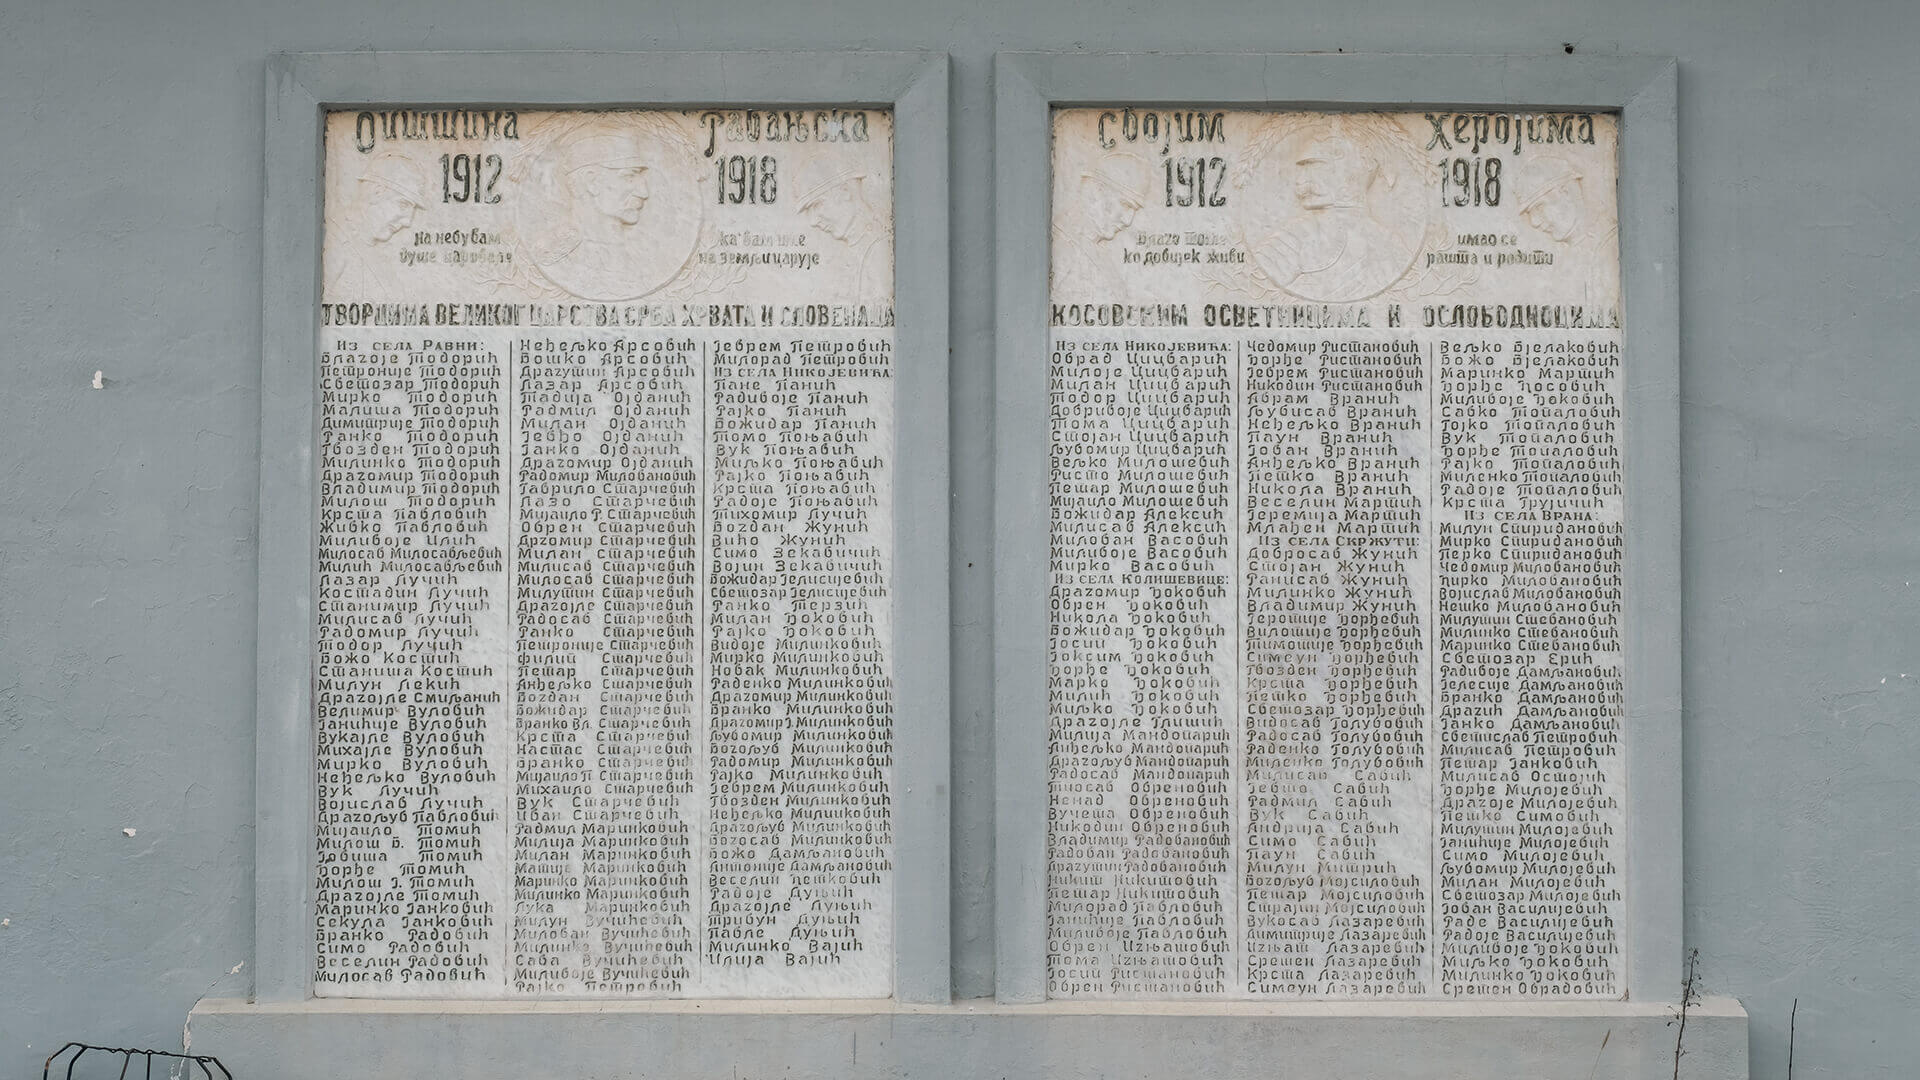 Општина Рабањска
1912 1918
на небу вам
душе царовале
на земљи царује
ТВОРЦИМА ВЕЛИКОГ ЦАРСТВА СРБА ХРВАТА И СЛОВЕНАЦА
Из села Равни:
Благоје Тодорић
Петроније Тодорић
Светозар Тодорић
Мирко Тодорић
Малиша Тодорић
Димитрије Тодорић
Ранко Тодорић
Гвозден Тодорић
Милинко Тодорић
Драгомир Тодорић
Владимир Тодорић
Милош Тодорић
Крста Павловић
Живко Павловић
Миливоје Илић
Милосав Милосављевић
Милић Милосављевић
Лазар Лучић
Костадин Лучић
Станимир Лучић
Милисав Лучић
Радомир Лучић
Тодор Лучић
Божо Костић
Станиша Костић
Милун Лекић
Драгојле Смиљанић
Велимир Вуловић
Јанићије Вуловић
Вукајле Вуловић
Михајле Вуловић
Мирко Вуловић
Неђељко Вуловић
Вук Лучић
Војислав Лучић
Драгољуб Павловић
Мијаило Томић
Милош Б. Томић
Јовиша Томић
Ђорђе Томић
Милош Ј. Томић
Драгојле Томић
Маринко Јанковић
Секула Јанковић
Бранко Радовић
Симо Радовић
Веселин Радовић
Милосав Радовић
Неђељко Арсовић
Бошко Арсовић
Драгутин Арсовић
Лазар Арсовић
Тадија Ојданић
Радмил Ојданић
Милан Ојданић
Јевђо Ојданић
Јанко Ојданић
Драгомир Ојданић
Радомир Миловановић
Гаврило Старчевић
Лазо Старчевић
Мијаило Р. Старчевић
Обрен Старчевић
Дргомир Старчевић
Милан Старчевић
Милисав Старчевић
Милосав Старчевић
Милутин Старчевић
Драгојле Старчевић
Радосав Старчевић
Ранко Старчевић
Петроније Старчевић
Филип Старчевић
Петар Старчевић
Анђељко Старчевић
Богдан Старчевић
Божидар Старчевић
Бранко Вл. Старчевић
Крста Старчевић
Настас Старчевић
Бранко Старчевић
Мијаило П Старчевић
Михаило Старчевић
Вук Старчевић
Иван Старчевић
Радмил Маринковић
Милија Маринковић
Милан Маринковић
Матије Маринковић
Маринко Маринковић
Милинко Маринковић
Лука Маринковић
Милун Вучићевић
Милован Вучићевић
Милинко Вучићевић
Сава Вучићевић
Миливоје Вучићевић
Рајко Петровић
Јеврем Петровић
Милорад Петровић
Из села Никојевића:
Пане Панић
Радивоје Панић
Рајко Панић
Божидар Панић
Томо Поњавић
Вук Поњавић
Миљко Поњавић
Рајко Поњавић
Крста Поњавић
Радоје Поњавић
Тихомир Лучић
Богдан Жунић
Вићо Жунић
Симо Зекавичић
Војин Зекавичић
Божидар Јелисијевић
Светозар Јелисијевић
Ранко Терзић
Милан Ђоковић
Рајко Ђоковић
Видоје Милинковић
Мирко Милинковић
Новак Милинковић
Раденко Милинковић
Драгомир Милинковић
Бранко Милинковић
Драгомир Ј. Милинковић
Љубомир Милинковић
Богољуб Милинковић
Радомир Милинковић
Рајко Милинковић
Јеврем Милинковић
Гвозден Милинковић
Неђељко Милинковић
Драгољуб Милинковић
Богосав Милинковић
Божо Дамљановић
Антоније Дамљановић
Веселин Петковић
Радоје Дуњић
Драгојле Дуњић
Трибун Дуњић
Павле Дуњић
Милинко Вајић
Илија Вајић
Својим Херојима
1912 1918
Благо
имао се
ко довијек живи
рашта и родити
КОСОВСКИМ ОСВЕТНИЦИМА И ОСЛОБОДИОЦИМА
Из села Никојевића:
Обрад Цицварић
Милоје Цицварић
Милан Цицварић
Тодор Цицварић
Добривоје Цицварић
Тома Цицварић
Стојан Цицварић
Љубомир Цицварић
Вељко Милошевић
Ристо Милошевић
Петар Милошевић
Мијаило Милошевић
Божидар Алексић
Милисав Алексић
Милован Васовић
Миливоје Васовић
Мирко Васовић
Из села Колишевице:
Драгомир Ђоковић
Обрен Ђоковић
Никола Ђоковић
Божидар Ђоковић
Јосип Ђоковић
Јоксим Ђоковић
Ђорђе Ђоковић
Марко Ђоковић
Милић Ђоковић
Миљко Ђоковић
Драгојле Глишић
Милија Мандопарић
Анђељко Мандопарић
Драгољуб Мандопарић
Радосав Мандопарић
Тиосав Обреновић
Ненад Обреновић
Вучета Обреновић
Никодин Обреновић
Владимир Радовановић
Радован Радовановић
Драгутин Радовановић
Никит Никитовић
Петар Никитовић
Милорад Павловић
Јанићије Павловић
Миливоје Павловић
Обрен Игњатовић
Тома Игњатовић
Јосип Ристановић
Обрен Ристановић
Чедомир Ристановић
Ђорђе Ристановић
Јеврем Ристановић
Никодин Ристановић
Аврам Вранић
Љубисав Вранић
Неђељко Вранић
Паун Вранић
Јован Вранић
Анђељко Вранић
Петко Вранић
Никола Вранић
Веселин Мартић
Јеремија Мартић
Млађен Мартић
Из села Скржути:
Добросав Жунић
Стојан Жунић
Ранисав Жунић
Милинко Жунић
Владимир Жунић
Јеротије Ђорђевић
Вилотије Ђорђевић
Тимотије Ђорђевић
Симеун Ђорђевић
Гвозден Ђорђевић
Крста Ђорђевић
Петко Ђорђевић
Светозар Ђорђевић
Видосав Голубовић
Радосав Голубовић
Раденко Голубовић
Миленко Голубовић
Милисав Савић
Јевто Савић
Радмил Савић
Вук Савић
Андрија Савић
Симо Савић
Паун Савић
Милун Митрић
Богољуб Мојсиловић
Петар Мојсиловић
Страјин Мојсиловић
Вукосав Лазаревић
Димитрије Лазаревић
Игњат Лазаревић
Срешен Лазаревић
Крста Лазаревић
Симеун Лазаревић
Вељко Бјелаковић
Божо Бјелаковић
Маринко Мартић
Ђорђе Ћосовић
Миливоје Ђоковић
Савко Топаловић
Гојко Топаловић
Вук Топаловић
Ђорђе Топаловић
Рајко Топаловић
Миленко Топаловић
Радоје Топаловић
Крста Грујичић
Из села Врана:
Милун Спиридановић
Мирко Спиридановић
Перко Спиридановић
Чедомир Миловановић
Ђирко Миловановић
Војислав Миловановић
Нешко Миловановић
Милутин Стевановић
Милинко Стевановић
Маринко Стевановић
Светозар Ерић
Радивоје Дамљановић
Јелесије Дамљановић
Бранко Дамљановић
Драгић Дамљановић
Јанко Дамљановић
Светислав Петровић
Милисав Петровић
Петар Јанковић
Милисав Остојић
Ђорђе Милојевић
Драгоје Милојевић
Пешко Симовић
Милутин Милојевић
Јанићије Милојевић
Симо Милојевић
Љубомир Милојевић
Милан Милојевић
Светозар Милојевић
Јован Василијевић
Раде Василијевић
Радоје Василијевић
Миливоје Ђоковић
Миљко Ђоковић
Милинко Ђоковић
Сретен Обрадовић